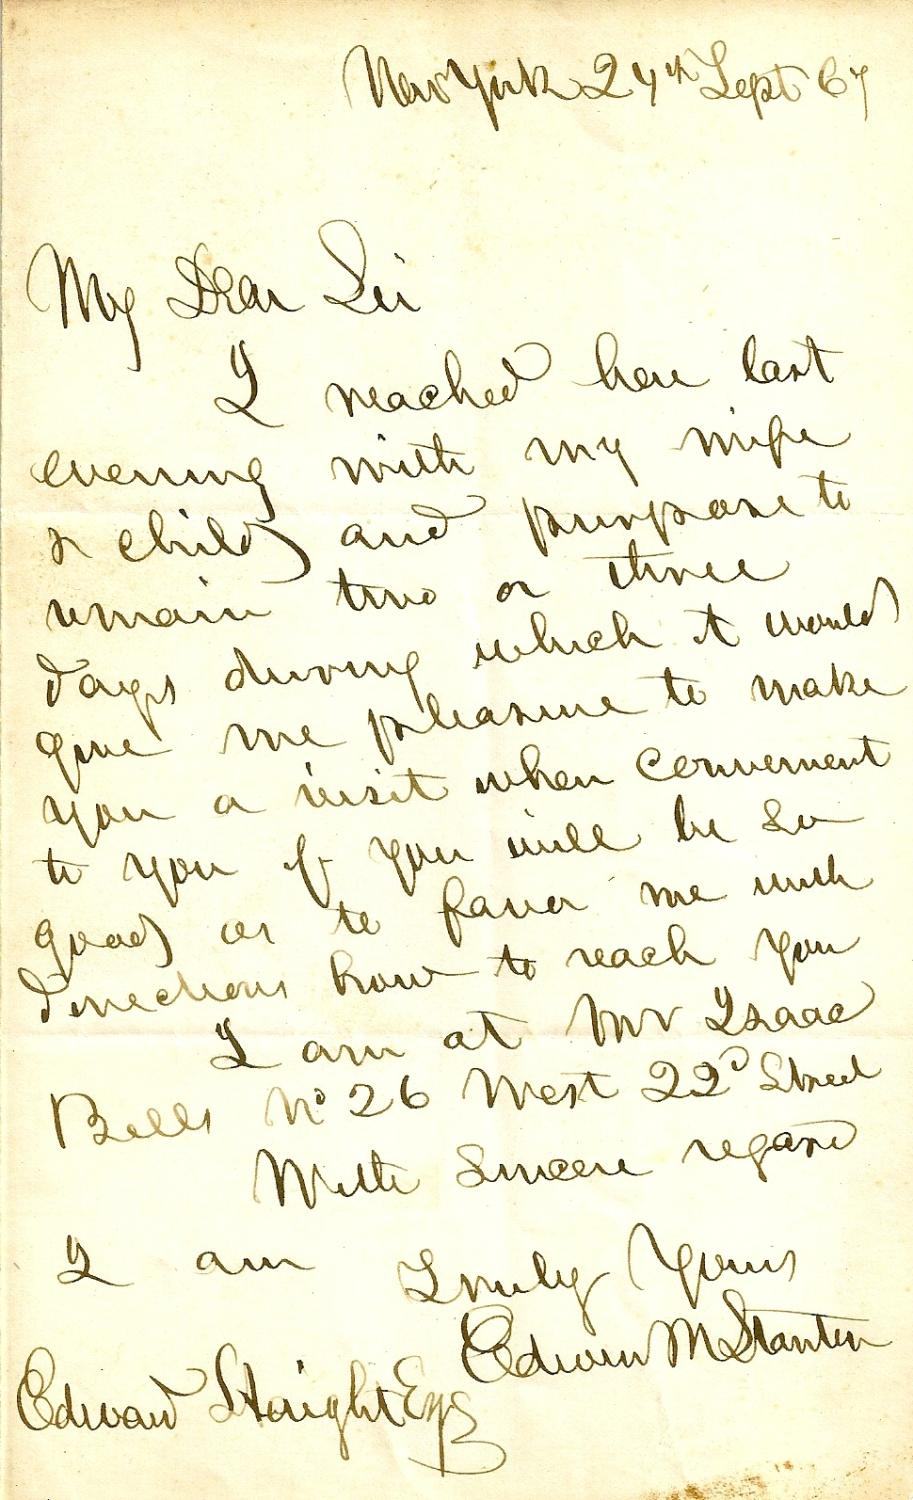 New York 24th Sept 67
My Dear Sir
I reached here last
evening with my wife
& child and purpose to
remain two or three
days during which it would
give me pleasure to make
you a visit when convenient
to you if you will be so
good as to favor me with
directions how to reach you
I am at Mr Isaac
Bells No 26 West 22d Street
With sincere regard
I am Truly Yours
Edwin M Stanton
Edward Haight Esq